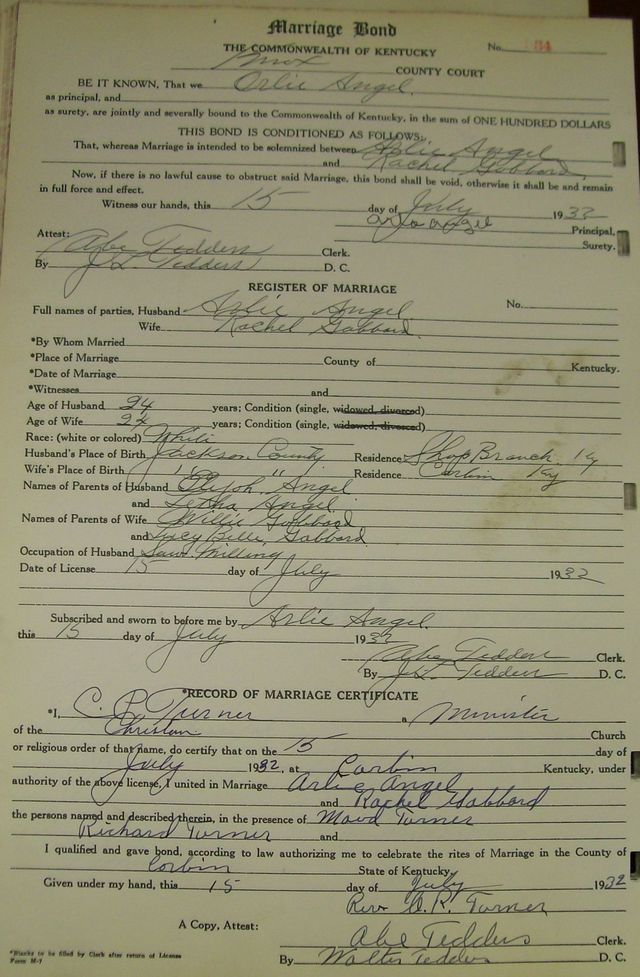 Marriage Bond
THE COMMONWEALTH OF KENTUCKY No. 34
Knox COUNTY COURT
BE IT KNOWN, That we Orlie Angel
as principal, and
as surety, are jointly and severally bound to the Commonwealth of Kentucky, in the sum of ONE HUNDRED DOLLARS
THIS BOND IS CONDITIONED AS FOLLOWS:
That, whereas Marriage is intended to be solemnized between Arlie Angel
and Rachel Gabbard
Now, if there is no lawful cause to obstruct said Marriage, this bond shall be void, otherwise it shall be and remain
in full force and effect.
Witness our hands, this 15 day of July 1932
Principal,
Attest: Surety.
Abe Tedders Clerk.
By J.L. Tedders D. C.
REGISTER OF MARRIAGE
Full names of parties, Husband Arlie Angel No.
Wife Rachel Gabbard
*By Whom Married
*Place of Marriage County of Kentucky.
*Date of Marriage
*Witnesses and
Age of Husband 24 years; Condition (single, widowed, divorced)
Age of Wife 24 years; Condition (single, widowed, divorced)
Race: (white or colored) White
Husband's Place of Birth Jackson County Residence Shop Branch Ky
Wife's Place of Birth " " Residence Corbin Ky
Names of Parents of Husband Elijoh Angel
and Letha Angel
Names of Parents of Wife Willie Gabbard
and Lucy Belle Gabbard
Occupation of Husband Saw Milling
Date of License 15 day of July 1932
Subscribed and sworn to before me by Arlie Angel
this 15 day of July 1932
Abe Tedders Clerk.
By J.L. Tedders D. C.
*RECORD OF MARRIAGE CERTIFICATE
*I, C. R. Turner a Minister
of the Christian Church
or religious order of that name, do certify that on the 15 day of
July 1932, at Corbin Kentucky, under
authority of the above license, I united in Marriage Arlie Angel
and Rachel Gabbard
the persons named and described therein, in the presence of Maud Turner
Richard Turner and
I qualified and gave bond, according to law authorizing me to celebrate the rites of Marriage in the County of
Corbin State of Kentucky.
Given under my hand, this 15 day of July 1932
Rev. C. R. Turner
A Copy, Attest: Abe Tedders Clerk.
By Walter Tedders D. C.
*Blanks to be filled by Clerk after return of License
Form M-7